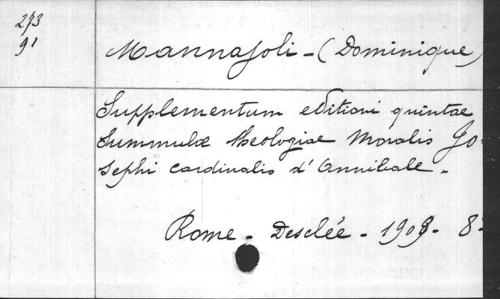 273
91
Mannajoli - (Dominique)
Supplementum editioni quintae
Summulae theologiae Moralis Jo-
sephi cardinalis d'Annibale -
Rome - Desclée - 1909 - 8°